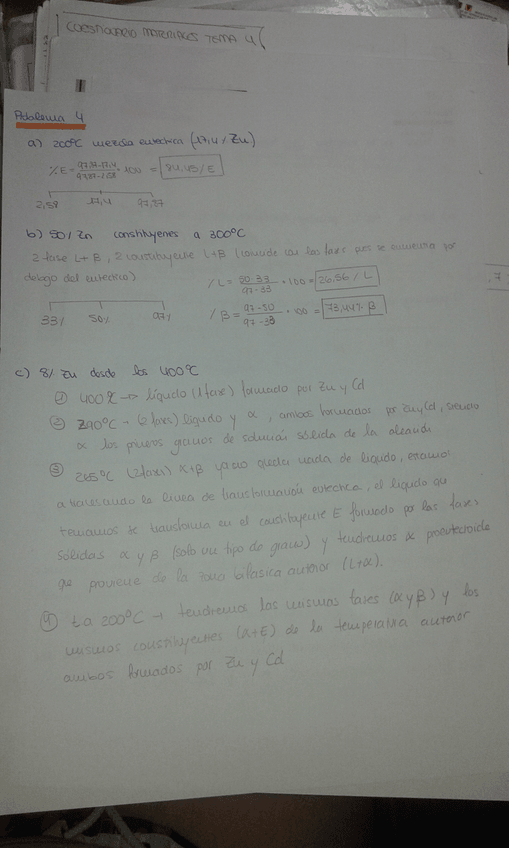 CUESTIONARIO MATERIALES TEMA 4
Problema 4
a) 200ºC mezcla eutectica (17,4% Zn)
%E = 97,87-17,4 / 97,87-2,58 · 100 = 84,45% E
2,58 17,4 97,87
b) 50% Zn constituyenes a 300ºC
2 fase L+B, 2 constituyente L+B (coincide con las fases pues se encuentra por
debajo del eutectico)
% L = 50-33 / 97-33 · 100 = 26,56% L
33% 50% 97%
% B = 97-50 / 97-33 · 100 = 73,44% B
c) 8% Zn desde los 400ºC
① 400ºC → líquido (1 fase) formado por Zn y Cd
② 290ºC - (2 fases) líquido y α, ambos formados por Zn y Cd, siendo
α los primeros granos de solución sólida de la aleación
③ 265ºC (2 fases) α+β ya no queda nada de líquido, estamos
atravesando la linea de transformación eutectica, el líquido que
teniamos se transforma en el constituyente E formado por las fases
sólidas α y β (solo un tipo de grano) y tendremos α proeutectoide
que proviene de la zona bifásica anterior (L+α).
④ ta 200ºC → tendremos las mismas fases (α y β) y los
mismos constituyentes (α+E) de la temperatura anterior
ambos formados por Zn y Cd